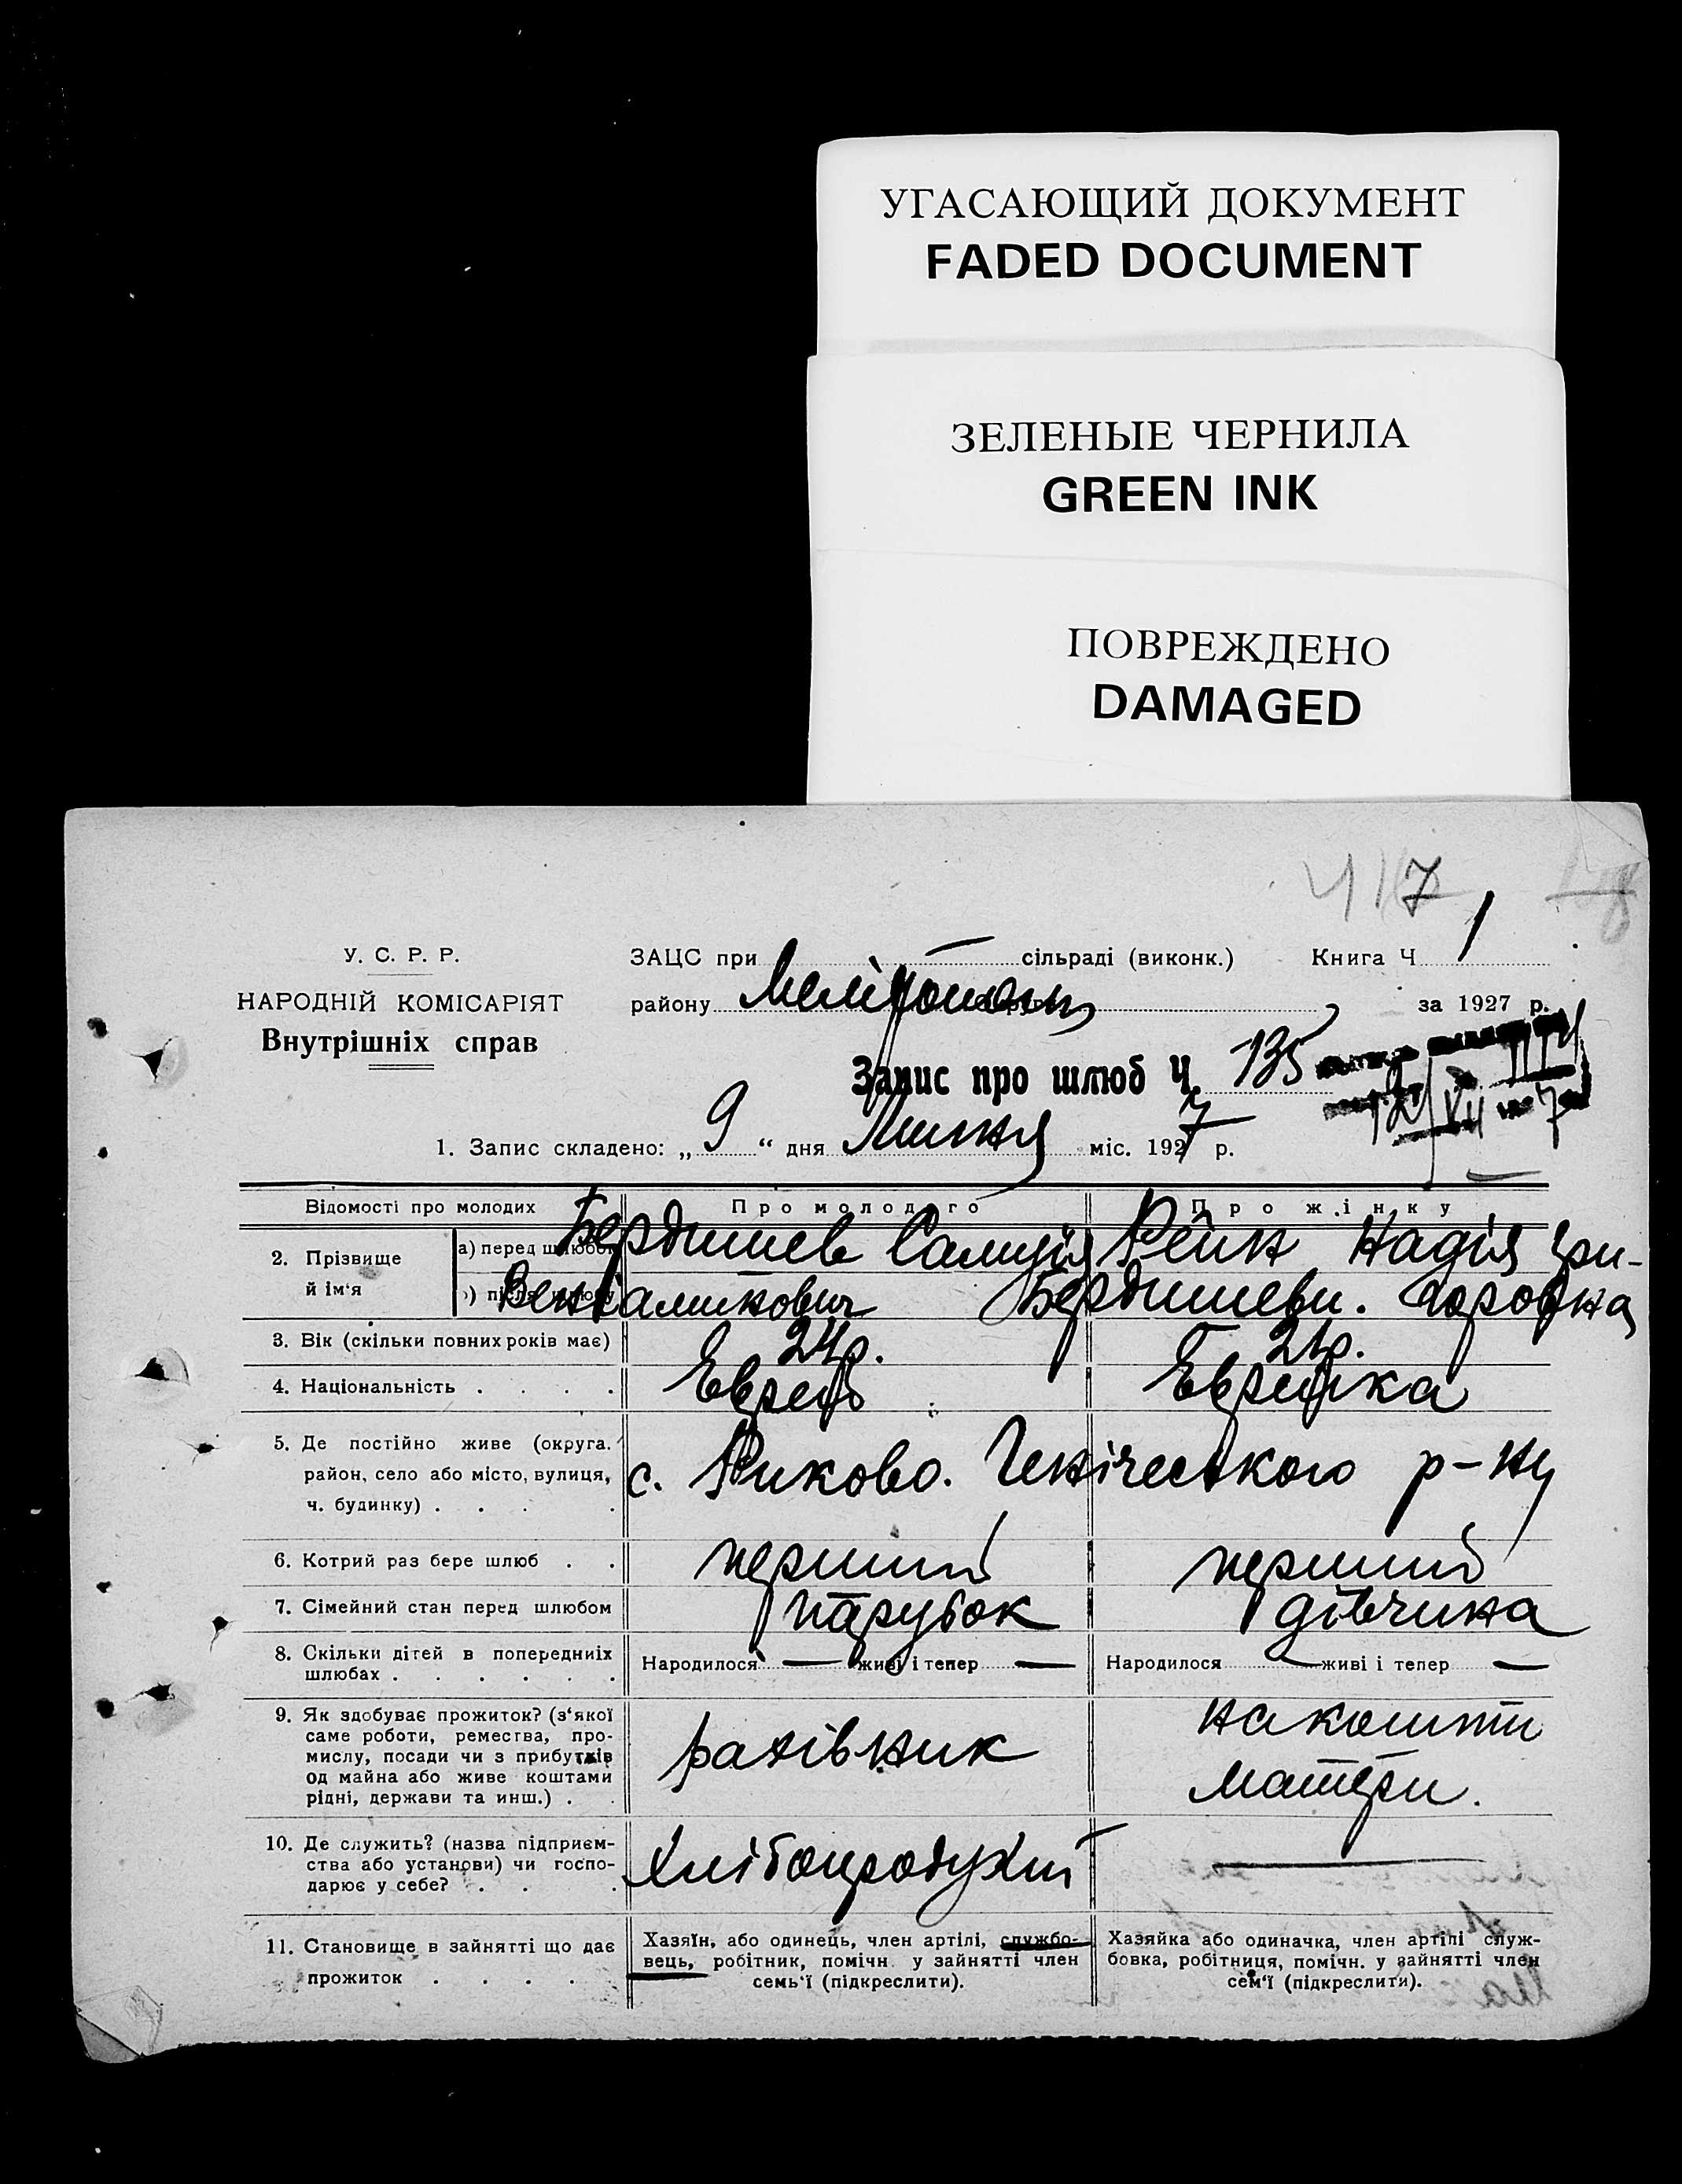 УГАСАЮЩИЙ ДОКУМЕНТ
FADED DOCUMENT
ЗЕЛЕНЫЕ ЧЕРНИЛА
GREEN INK
ПОВРЕЖДЕНО
DAMAGED
417
У. С. Р. Р.
НАРОДНІЙ КОМІСАРІЯТ
Внутрішніх справ
ЗАЦС при сільраді (виконк.) Книга Ч 1
району Меліτοполь за 1927 р.
Запис про шлюб Ч. 135
1. Запис складено: „ 9 “ дня Липня міс. 1927 р.
Відомості про молодих Про молодого Про жінку
2. Прізвище й ім‘я
а) перед шлюбом Бердишев Самуїл Рейн Надія Гри-
б) після шлюбу Веніамінович Бердишеви.
3. Вік (скільки повних років має) 24р. 21р.
4. Національність . . . . Еврей Еврейка
5. Де постійно живе (округа.
район, село або місто, вулиця, с. Риково. Генічеського р-ну
ч. будинку) . . . .
6. Котрий раз бере шлюб . . перший перший
7. Сімейний стан перед шлюбом парубок дівчина
8. Скільки дітей в попередніх Народилося — живі і тепер — Народилося — живі і тепер —
шлюбах . . . . . .
9. Як здобуває прожиток? (з‘якої
саме роботи, ремества, про-
мислу, посади чи з прибутків
од майна або живе коштами
рідні, держави та инш.) . .
рахівник
на кошти
матери.
10. Де служить? (назва підприєм-
ства або установи) чи госпо-
дарює у себе? . . .
Хлібопродукт —
11. Становище в зайнятті що дає
прожиток . . . .
Хазяїн, або одинець, член артілі, службо-
вець, робітник, помічн. у зайнятті член
семь‘ї (підкреслити).
Хазяйка або одиначка, член артілі служ-
бовка, робітниця, помічн. у зайнятті член
сем‘ї (підкреслити).